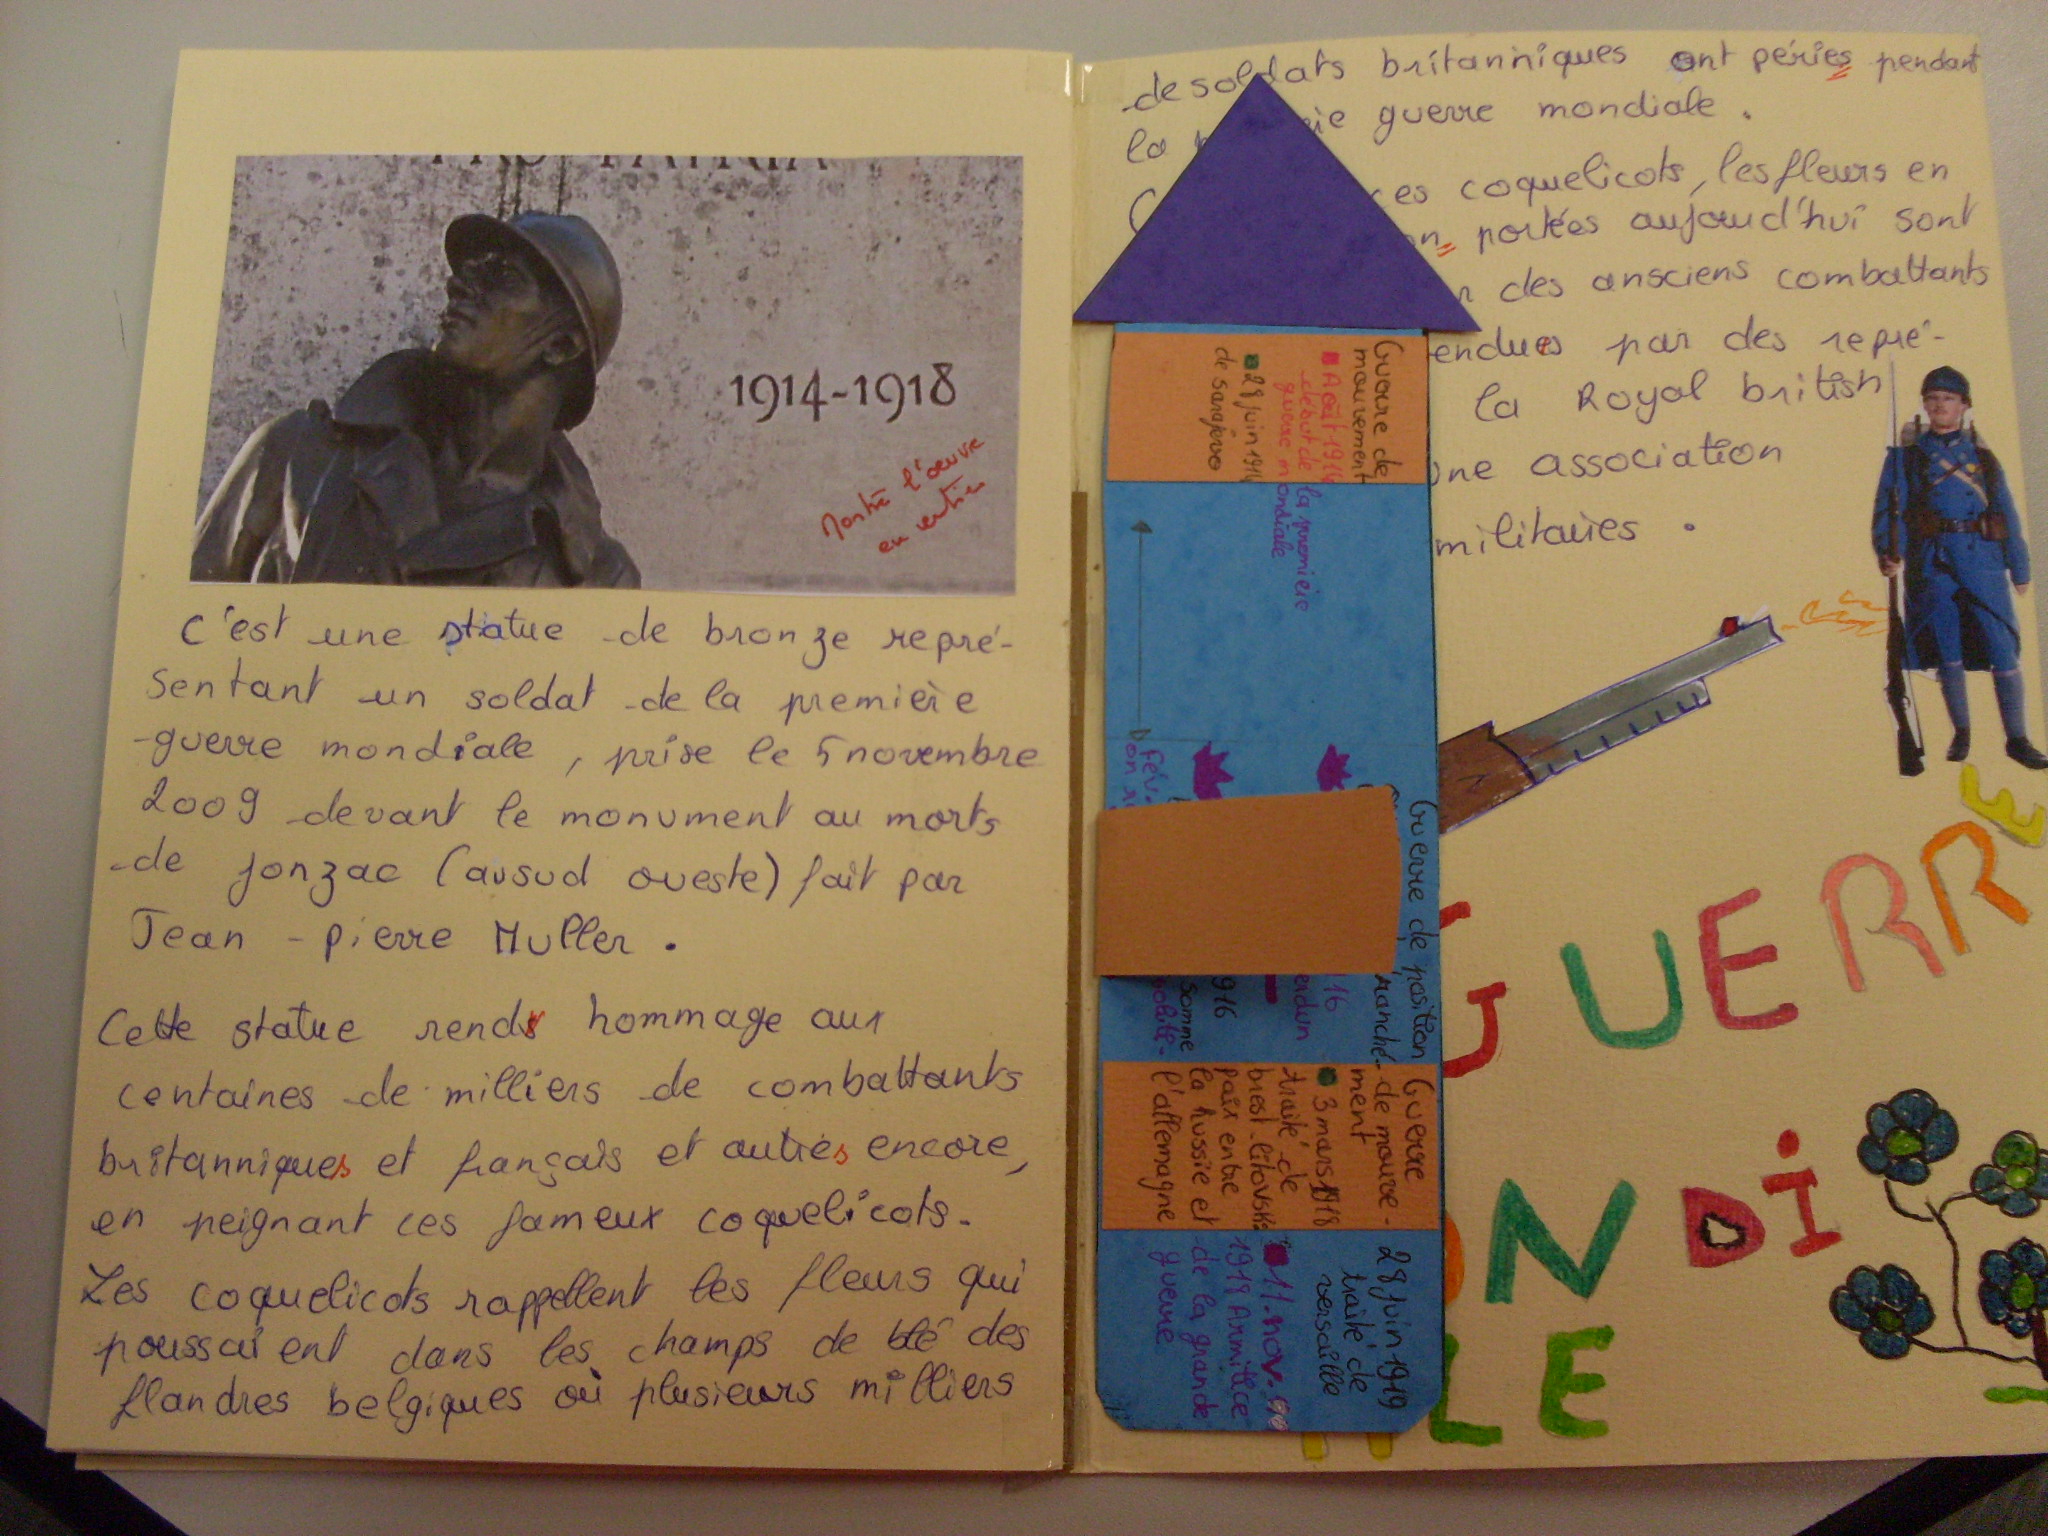 PRO PATRIA
1914-1918
Montre l'œuvre
en entier
C'est une statue de bronze repré-
sentant un soldat de la première
guerre mondiale, prise le 5 novembre
2009 devant le monument au morts
de jonzac (au sud oueste) fait par
Jean-pierre Muller.
Cette statue rends hommage aux
centaines de milliers de combattants
britanniques et français et autres encore,
en peignant ces fameux coquelicots.
Les coquelicots rappellent les fleurs qui
poussaient dans les champs de blé des
flandres belgiques où plusieurs milliers
de soldats britanniques ont péries pendant
la guerre mondiale.
ces coquelicots, les fleurs en
portées aujourd'hui sont
des ansciens combattants
par des repré-
la Royal british
une association
militaires.
Guerre de
mouvement
Août 1914
début de la première
guerre mondiale
28 juin 1914
de sarajevo
Guerre de position
Guerre
de mouve-
ment
3 mars 1918
traité de
brest-litovsk
paix entre
la Russie et
l'allemagne
28 juin 1919
traité de
versaille
11. nov.
1918 Armistice
de la grande
guerre
GUERRE
MONDI
ALE